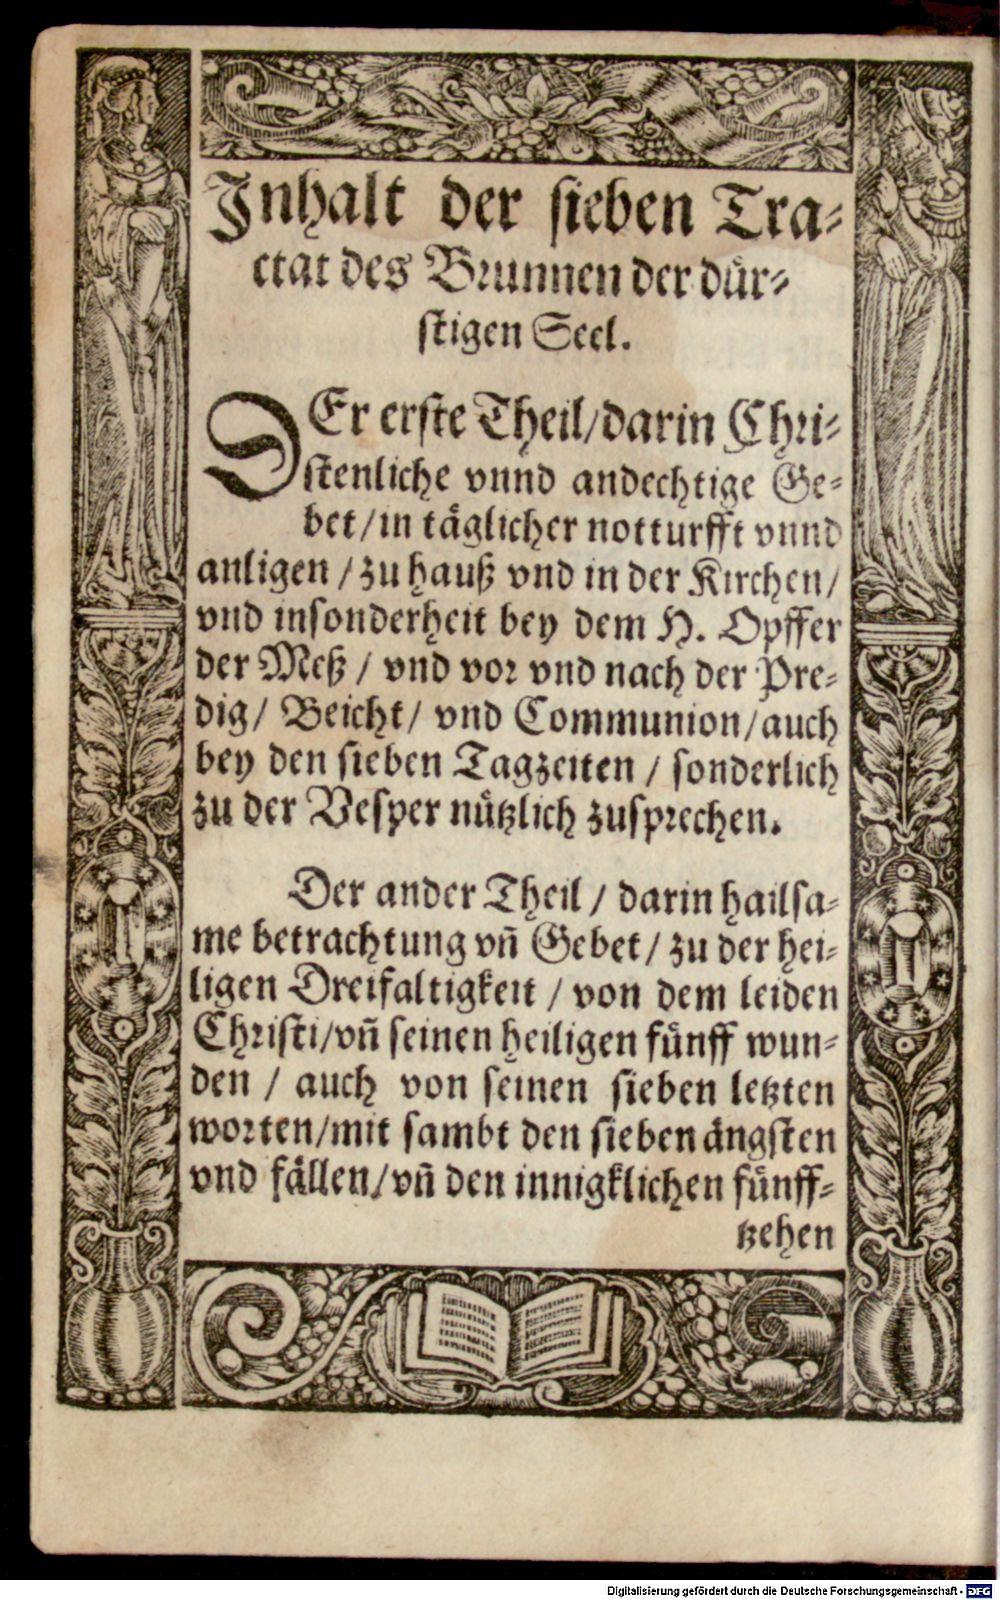 Inhalt der sieben Tra⸗
ctat des Brunnen der dür⸗
stigen Seel.
DEr erste Theil/darin Chri⸗
stenliche vnnd andechtige Ge⸗
bet/in täglicher notturfft vnnd
anligen / zu hauß vnd in der Kirchen/
vnd insonderheit bey dem H. Opffer
der Meß / vnd vor vnd nach der Pre⸗
dig/ Beicht/ vnd Communion/auch
bey den sieben Tagzeiten / sonderlich
zu der Vesper nützlich zusprechen.
Der ander Theil / darin hailsa⸗
me betrachtung vn̄ Gebet/ zu der hei⸗
ligen Dreifaltigkeit / von dem leiden
Christi/vn̄ seinen heiligen fünff wun⸗
den / auch von seinen sieben letzten
worten/mit sambt den sieben ängsten
vnd fällen/vn̄ den innigklichen fünff⸗
tzehen
Digitalisierung gefördert durch die Deutsche Forschungsgemeinschaft - DFG